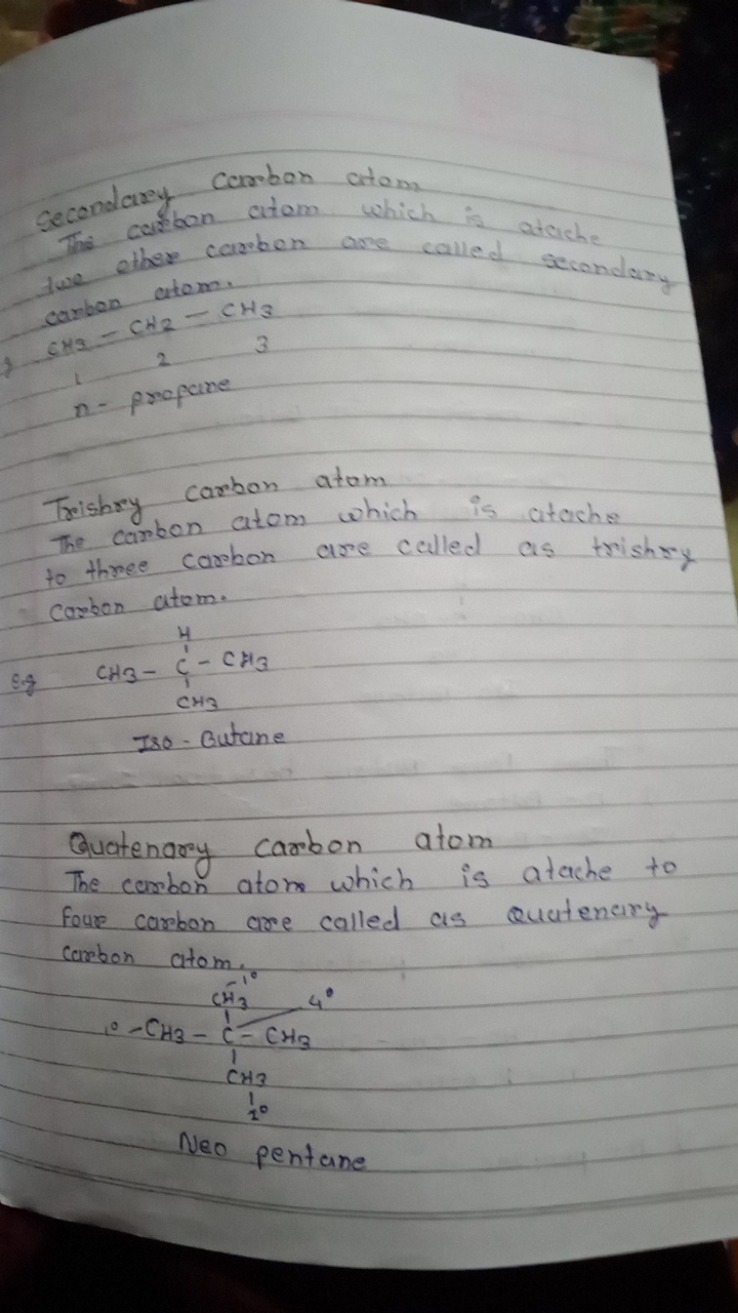 Secondarey carbon atom
The carbon atom which is atache
two other carbon are called secondary
carbon atom.
CH3 - CH2 - CH3
1 2 3
n - propane
Trishry carbon atom
The carbon atom which is atache
to three carbon are called as trishry
carbon atom.
H
e.g CH3 - C - CH3
CH3
Iso - Butane
Quatenary carbon atom
The carbon atom which is atache to
four carbon are called as Quatenary
carbon atom.
CH3 - 1° 4°
1° - CH3 - C - CH3
CH3
1°
Neo pentane